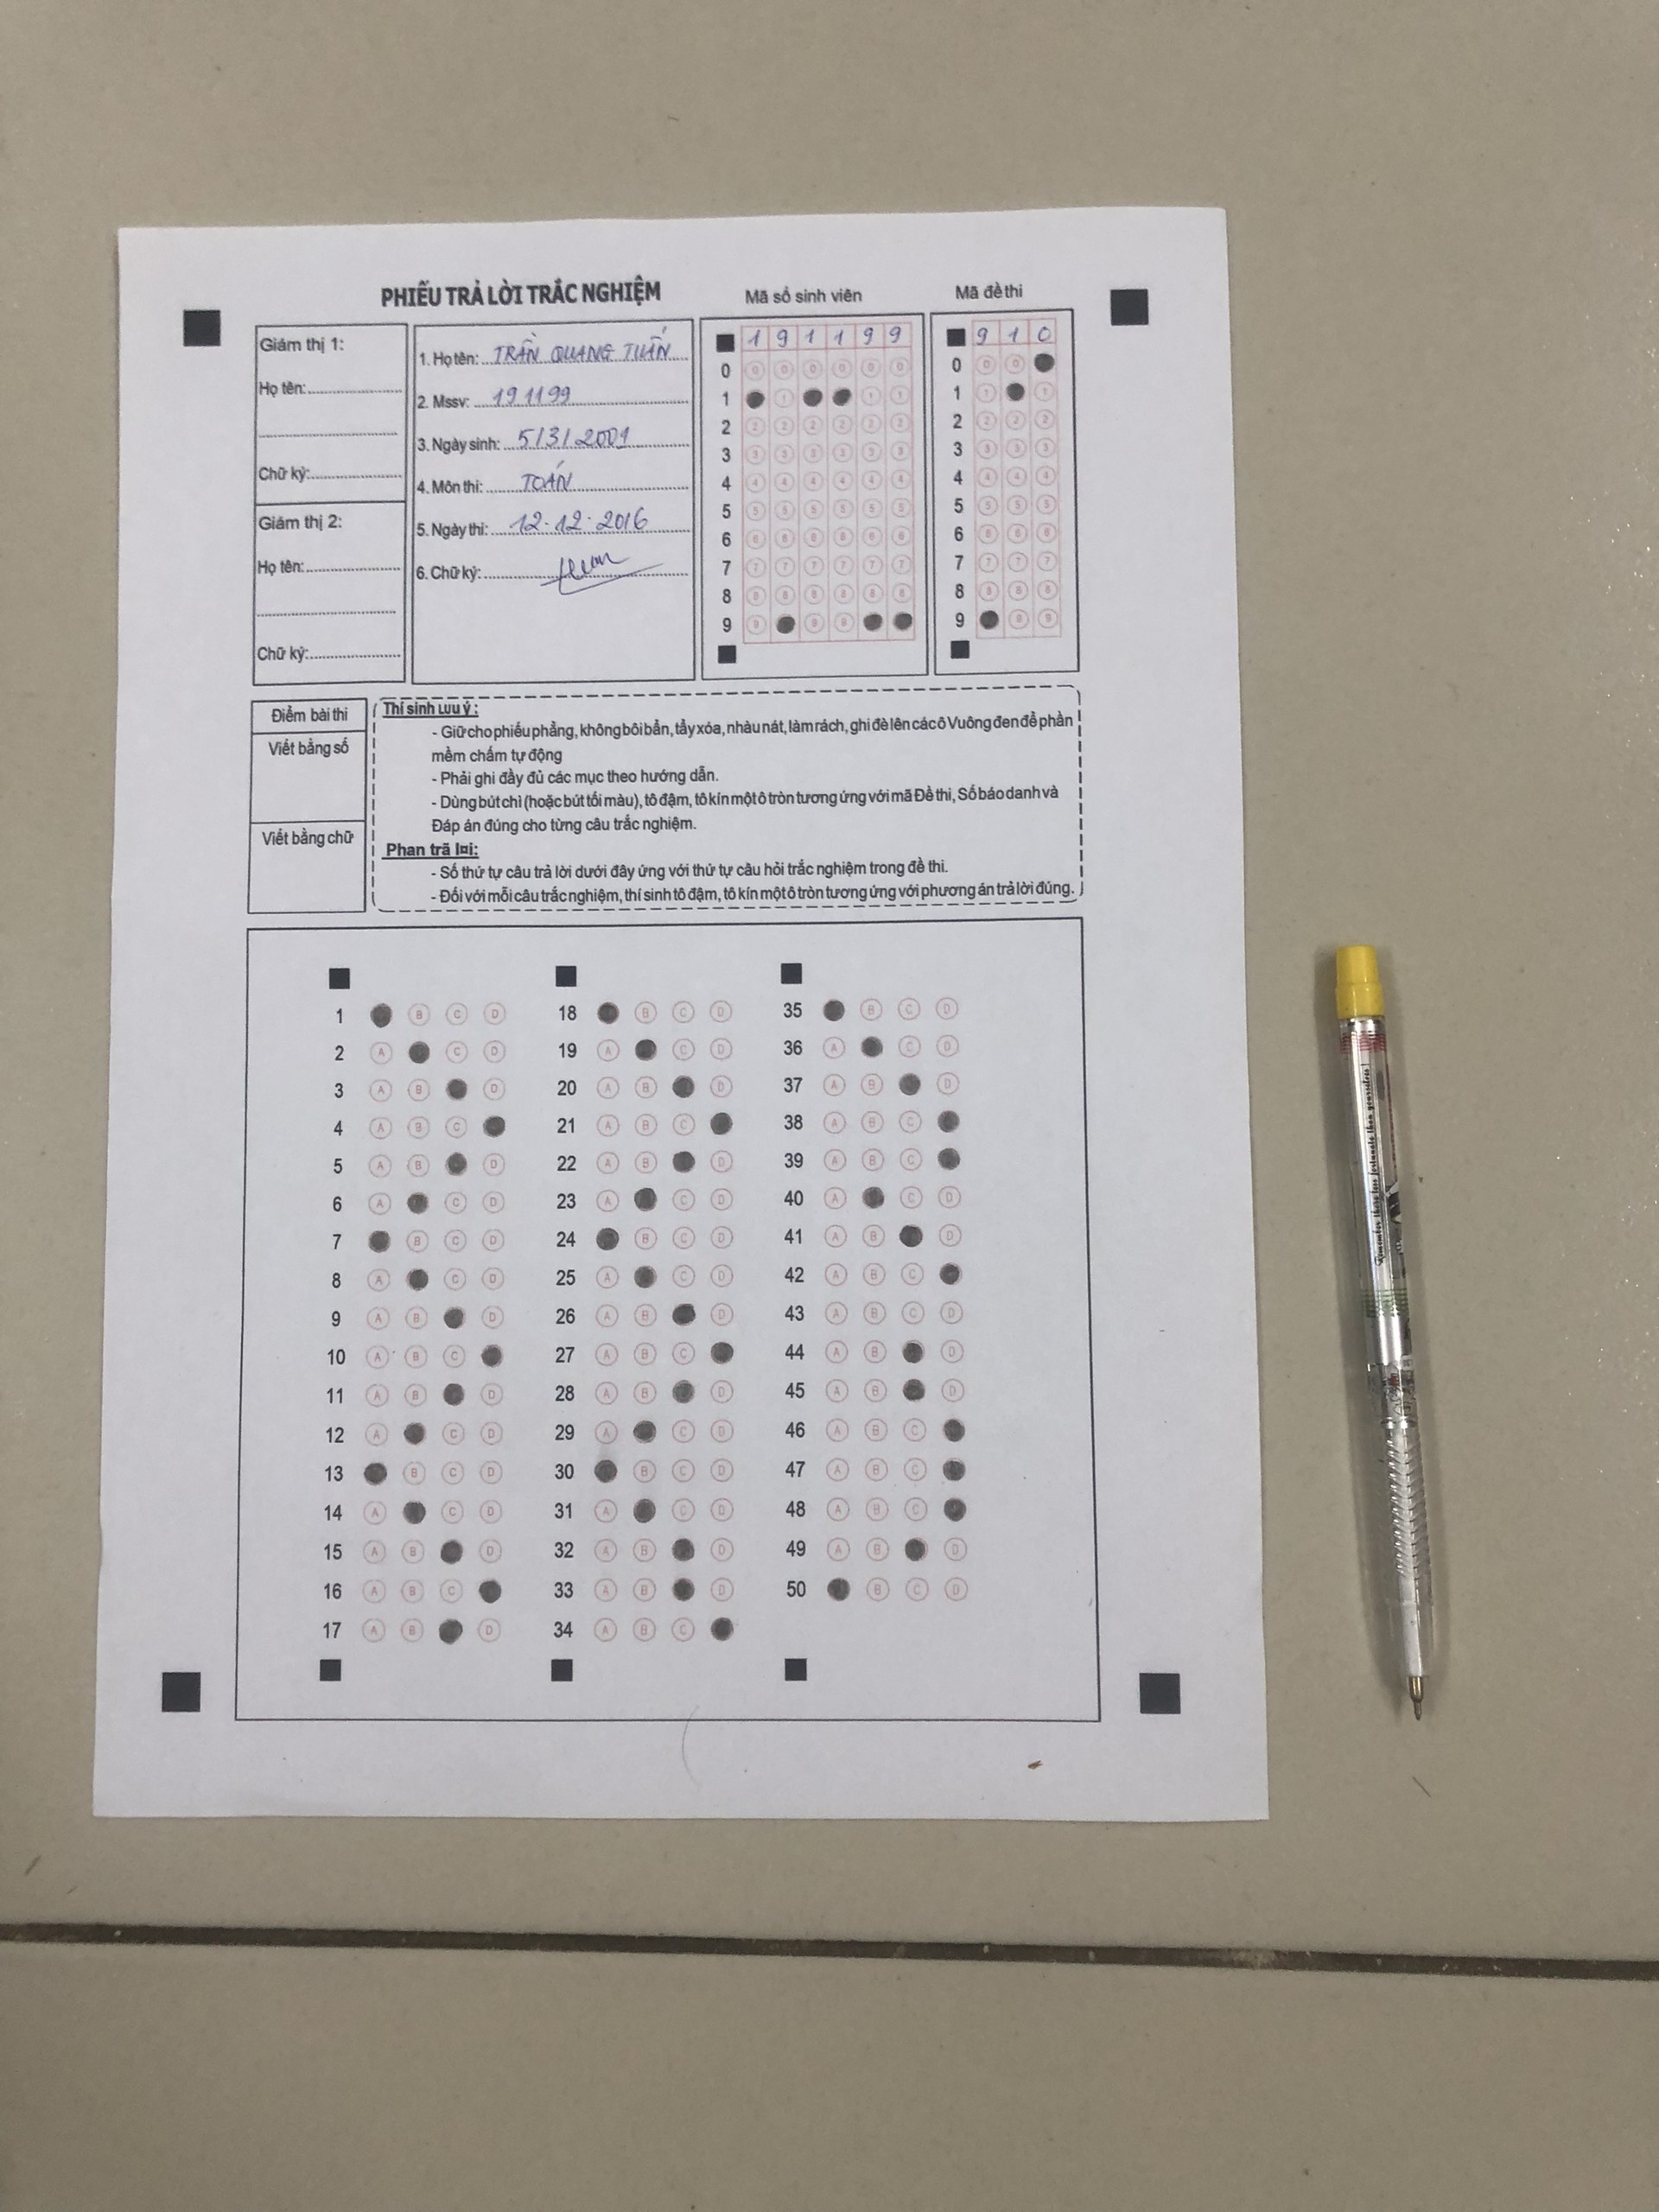 PHIẾU TRẢ LỜI TRẮC NGHIỆM
Mã số sinh viên
Mã đề thi
Giám thị 1:
Họ tên:
Chữ ký:
Giám thị 2:
Họ tên:
Chữ ký:
1. Họ tên: TRẦN QUANG TUẤN
2. Mssv: 191199
3. Ngày sinh: 5/3/2001
4. Môn thi: TOÁN
5. Ngày thi: 12.12.2016
6. Chữ ký:
1 9 1 1 9 9
0 0 0 0 0 0 0
1 1 1 1
2 2 2 2 2 2 2
3 3 3 3 3 3 3
4 4 4 4 4 4 4
5 5 5 5 5 5 5
6 6 6 6 6 6 6
7 7 7 7 7 7 7
8 8 8 8 8 8 8
9 9 9 9
9 1 0
0 0 0
1 1 1
2 2 2 2
3 3 3 3
4 4 4 4
5 5 5 5
6 6 6 6
7 7 7 7
8 8 8 8
9 9 9
Điểm bài thi
Viết bằng số
Viết bằng chữ
Thí sinh Lưu ý:
- Giữ cho phiếu phẳng, không bôi bẩn, tẩy xóa, nhàu nát, làm rách, ghi đè lên các ô Vuông đen để phần
mềm chấm tự động
- Phải ghi đầy đủ các mục theo hướng dẫn.
- Dùng bút chì (hoặc bút tối màu), tô đậm, tô kín một ô tròn tương ứng với mã Đề thi, Số báo danh và
Đáp án đúng cho từng câu trắc nghiệm.
Phan trã l¤i:
- Số thứ tự câu trả lời dưới đây ứng với thứ tự câu hỏi trắc nghiệm trong đề thi.
- Đối với mỗi câu trắc nghiệm, thí sinh tô đậm, tô kín một ô tròn tương ứng với phương án trả lời đúng.
1 B C D
2 A C D
3 A B D
4 A B C
5 A B D
6 A C D
7 B C D
8 A C D
9 A B D
10 A B C
11 A B D
12 A C D
13 B C D
14 A C D
15 A B D
16 A B C
17 A B D
18 B C D
19 A C D
20 A B D
21 A B C
22 A B D
23 A C D
24 B C D
25 A C D
26 A B D
27 A B C
28 A B D
29 A C D
30 B C D
31 A C D
32 A B D
33 A B D
34 A B C
35 B C D
36 A C D
37 A B D
38 A B C
39 A B C
40 A C D
41 A B D
42 A B C
43 A B C D
44 A B D
45 A B D
46 A B C
47 A B C
48 A B C
49 A B D
50 B C D